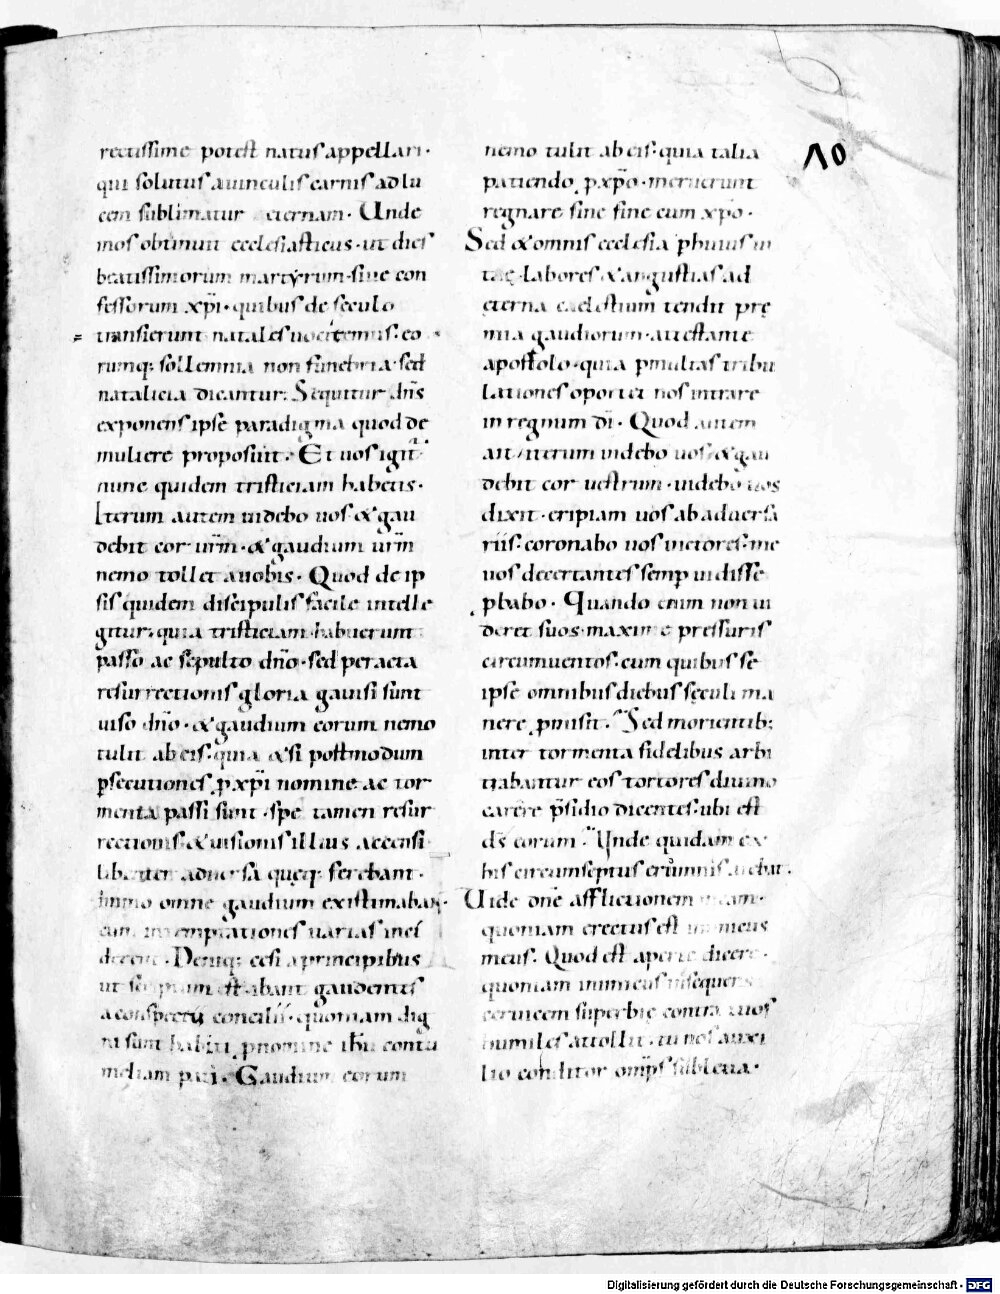 rectissime potest natus appellari·
qui solutus a uinculis carnis ad lu
cem sublimatur aeternam· Unde
mos obtinuit ecclesiasticus· ut dies
beatissimorum martyrum· siue con
fessorum xp̄i· quibus de seculo
transierunt natales uocitemus· eo
rumq; sollemnia non funebria sed
natalicia dicantur; Sequitur dn̄s
exponens ipse paradigma quod de
muliere proposuit· Et uos igit̄
nunc quidem tristiciam habetis·
Iterum autem uidebo uos· & gau
debit cor ur̄m· & gaudium ur̄m
nemo tollet a uobis· Quod de ip
sis quidem discipulis facile intelle
gitur· quia tristiciam habuerunt
passo ac sepulto dn̄o· sed peracta
resurrectionis gloria gauisi sunt
uiso dn̄o· & gaudium eorum nemo
tulit ab eis· quia & si postmodum
p̱secutiones p̱ xp̄i nomine ac tor
menta passi sunt· spe tamen resur
rectionis· & uisionis illius accensi
libenter aduersa queq; ferebant·
Immo omne gaudium existimabant·
cum in temptationes uarias inci
derent· Deniq; cesi a principibus
ut scriptum est· ibant gaudentes
a conspectu concilii· quoniam dig
ni sunt habiti p̱ nomine ih̄u contu
meliam pati· Gaudium eorum
nemo tulit ab eis· quia talia
patiendo p̱ xp̄o· meruerunt
regnare sine fine cum xp̄o·
Sed & omnis ecclesia p̱ huius ui
tae labores & angustias ad
ęterna caelestium tendit prę
mia gaudiorum· attestante
apostolo· quia p̱ multas tribu
lationes oportet nos intrare
in regnum dī· Quod autem
ait iterum uidebo uos· & gau
debit cor uestrum· uidebo uos
dixit· eripiam uos ab aduersa
riis· coronabo uos uictores· me
uos decertantes semp̱ uidisse
p̱babo· Quando enim non ui
deret suos· maxime pressuris
circumuentos· cum quibus se
ipse omnibus diebus sęculi ma
nere p̱misit· Sed morientib;
inter tormenta fidelibus arbi
trabantur eos tortores diuino
carere p̄sidio dicentes· ubi est
ds̄ eorum· Unde quidam ex
his circumseptus erumnis aiebat·
Uide dn̄e afflictionem meam·
quoniam erectus est inimicus
meus· Quod est aperte dicere·
quoniam inimicus insequens
ceruicem superbię contra nos
humiles attollit· tu nos auxi
lio conditor omp̄s subleua·